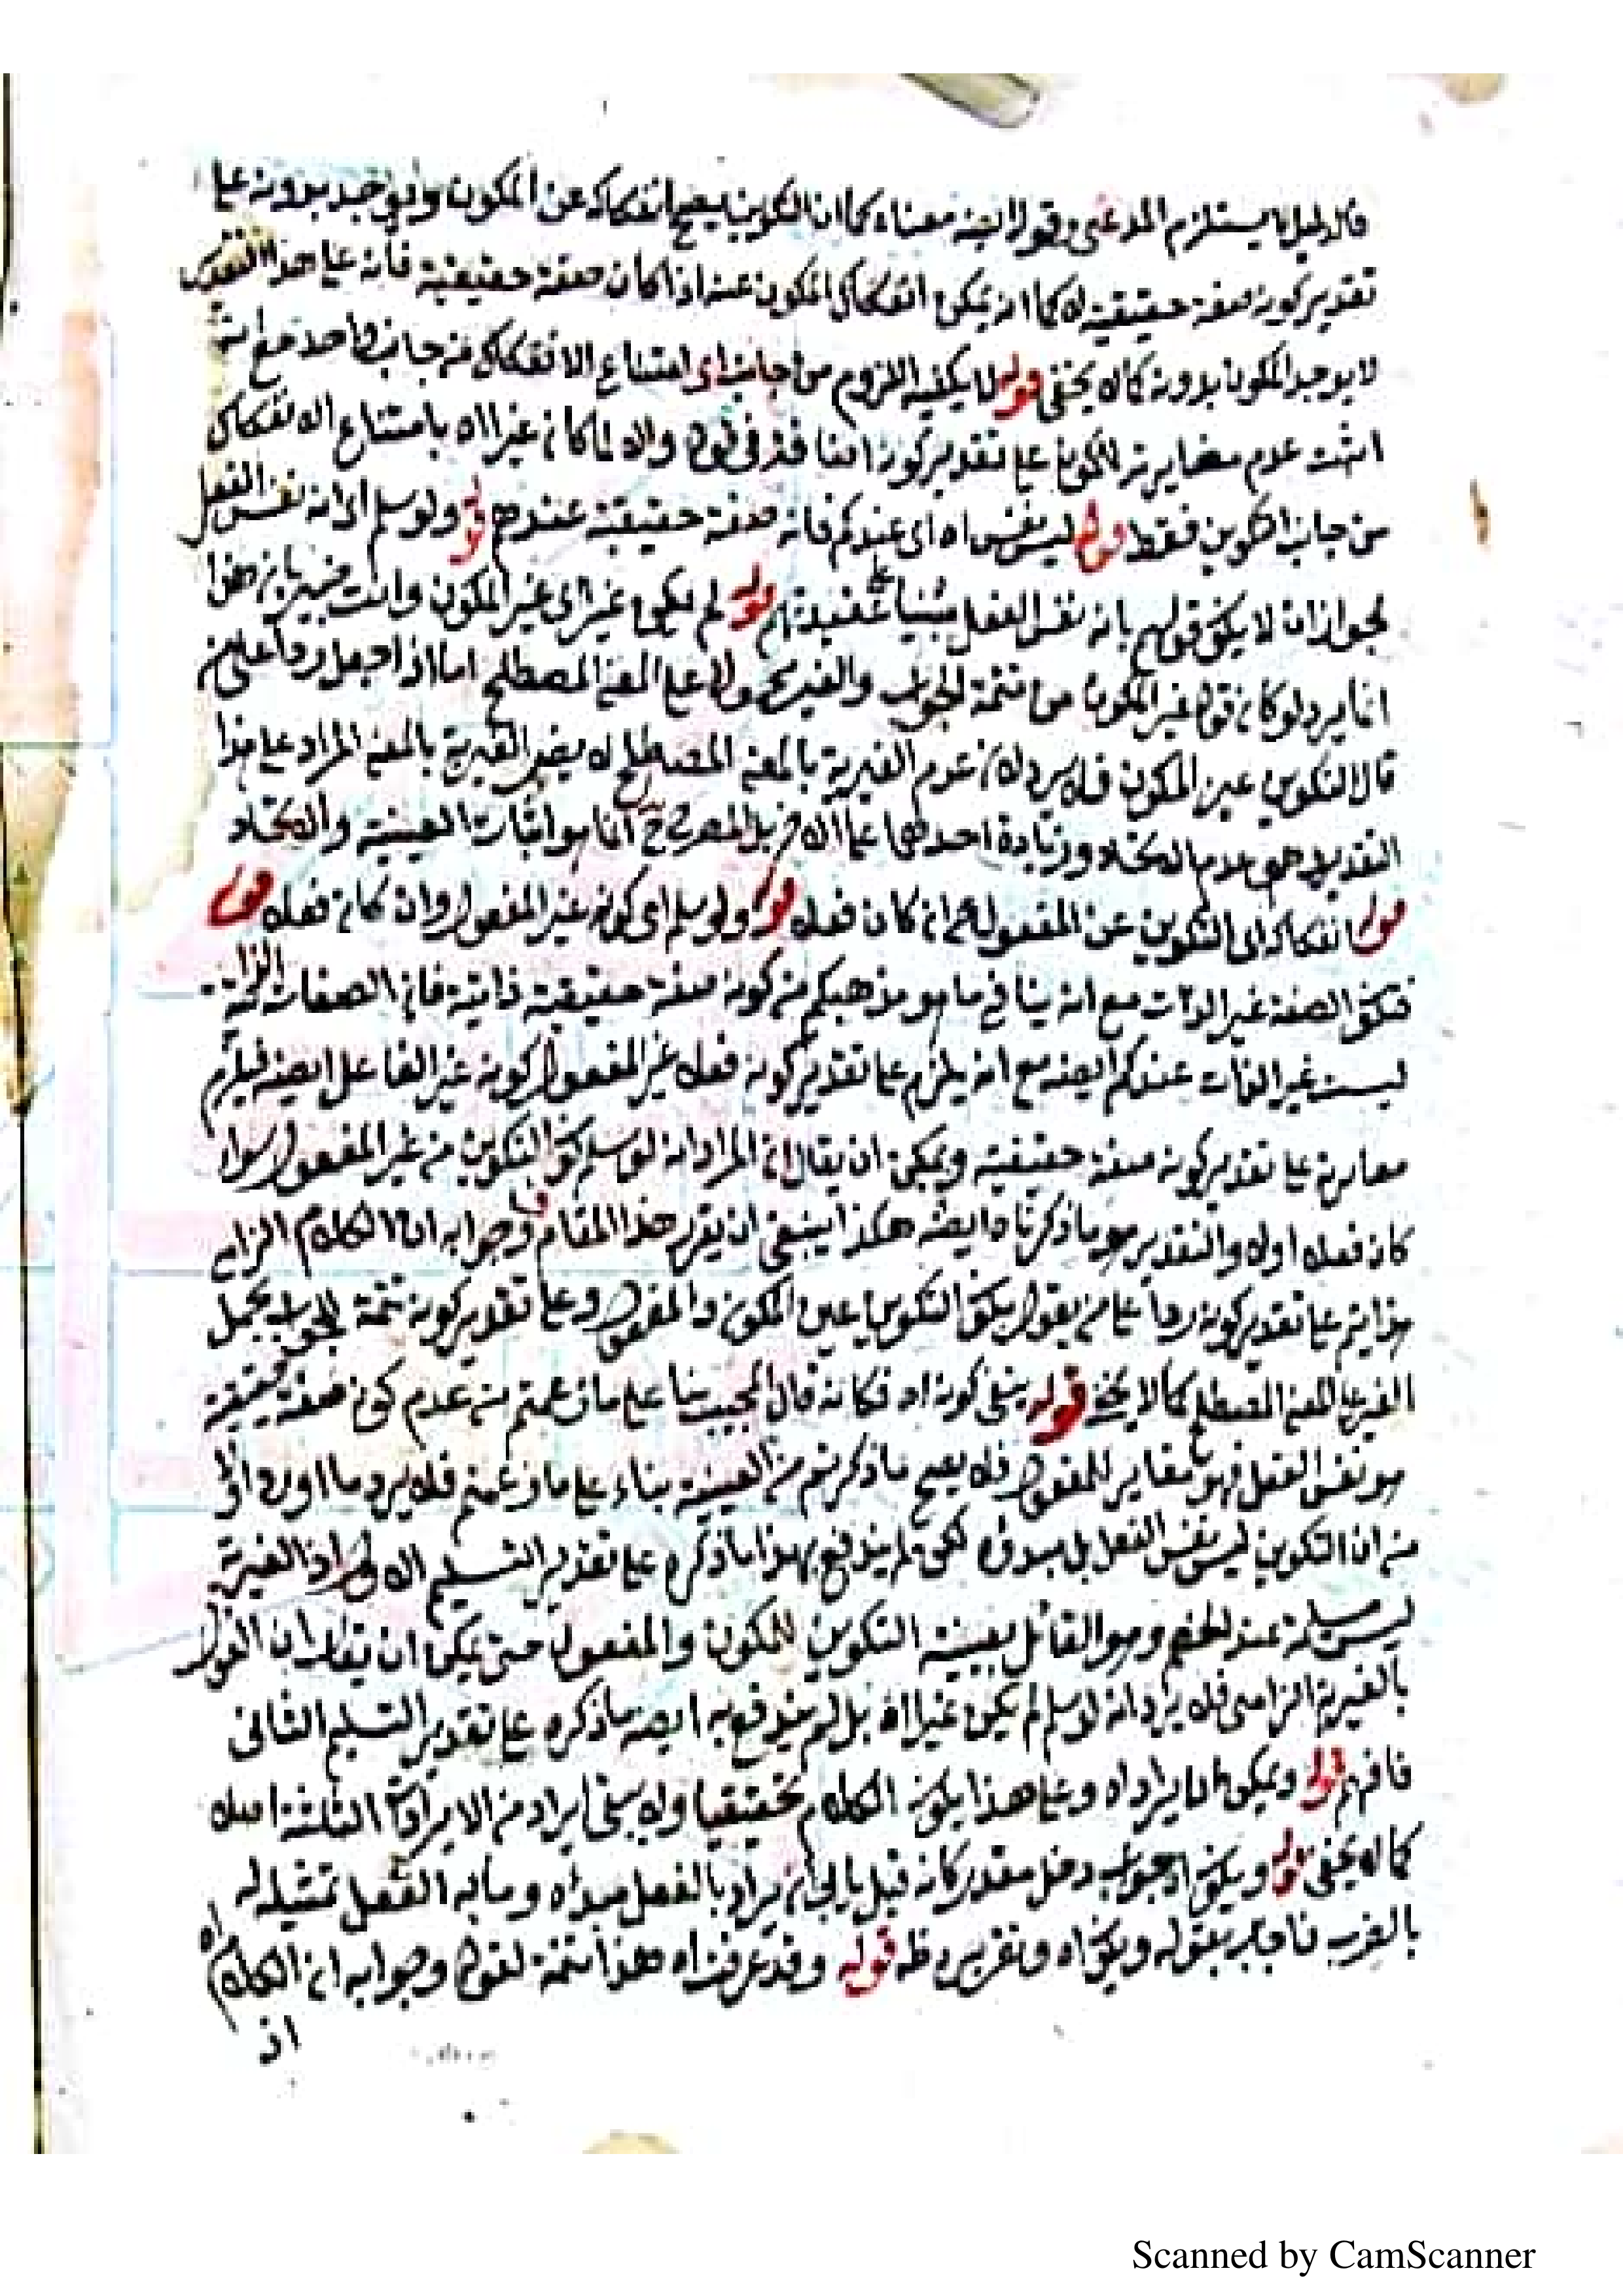 فالدليل لا يستلزم المدعى وقوله ايضه معناه كما ان التكوين يصح انفكاكه عن المكون ولو وجد بدونه على
تقدير كونه صفة حقيقية له كما انه يمكن انفكاك المكون عنه اذا كان صفة حقيقية فانه على هذا التقدير
لا يوجد المكون بدونه كما لا يخفى قوله لا يكفيه اللزوم من جانب اى امتناع الانفكاك من جانب واحد مع انه
اثبت عدم مغايرته للمكون على تقدير كونه اضافة في قوله والا لما كان غيرا اه بامتناع الانفكاك
من جانب التكوين فقط قوله ليس نفس اه اى عندكم فانه صفة حقيقية عندهم قوله ولو سلم ان نفس الفعل
لجواز ان لا يكون قولهم بانه نفس الفعل مبنيا على عقيدتهم قوله لم يكن غيرا اى غير المكون وانت خبير بانه هذا
انما يرد لو كان قوله غير المكون من تتمة الجواب والغير محمولا على المعنى المصطلح اما اذا جعل ردا على من
قال التكوين عين المكون فلا يرد لان عدم الغيرية بالمعنى المصطلح لا يضر الغيرية بالمعنى المراد على هذا
التقدير وهى عدم الاتحاد وزيادة احدهما على الاخر بل المصرح ح انما هو اثبات العينية والاتحاد
قوله انفكاكه اى التكوين عن المفعول كما ان كان فعله قوله ولو سلم اى كونه غير المفعول وان كان فعله قوله
فتكون الصفة غير الذات مع انه ينافي ما هو مذهبكم من كونه صفة حقيقية ذاتية فان الصفات الذاتية
ليست غير الذات عندكم ايضه مع انه يلزم على تقدير كونه فعله غير المفعول كونه غير الفاعل ايضه فيلزم
مغايرته على تقدير كونه صفة حقيقية ويمكن ان يقال ان المراد انه لو سلم كون التكوين من غير المفعول سواء
كان فعله اولا والتقدير هو ما ذكرناه ايضه هكذا ينبغى ان يقرر هذا المقام وجوابه ان الكلام الزامى
هذا يتم على تقدير كونه ردا على من يقول يكون التكوين عين المكون والمفعول وعلى تقدير كونه تتمة الجواب يحمل
الغير على المعنى المصطلح كما لا يخفى قوله ينبغى كونه اه فكانه قال المجيب بناء على ما زعمتم من عدم كونه صفة حقيقية
هو نفس الفعل فهو مغاير للمفعول فلا يصح ما ذكرتم من العينية بناء على ما زعمتم فلا يرد ما اورد اولا
من ان التكوين ليس نفس الفعل بل مبدؤه لكن لم يندفع بهذا ما ذكره على تقدير التسليم الاول اذ الغيرية
ليس مسلمة عند الخصم وهو القائل بعينية التكوين للمكون والمفعول حتى يمكن ان يقال ان القول
بالغيرية الزامى فلا يرد انه لو سلم لم يكن غيرا اه بل لم يندفع به ايضه ما ذكره على تقدير التسليم الثانى
فافهم قوله ويمكن ان يراد اه وعلى هذا يكون الكلام تحقيقيا ولا يبقى ايراد من الايرادات الثلثة اصلا
كما لا يخفى قوله ويكون اه جواب دخل مقدر كانه قيل يراد بالفعل مبداه وما به الفعل تمثيله
بالضرب فاجاب بقوله ويكون اه وتقريره ظ قوله وقد عرفت اه هذا تتمة لقوله وجوابه ان الكلام اه
اذ
Scanned by CamScanner